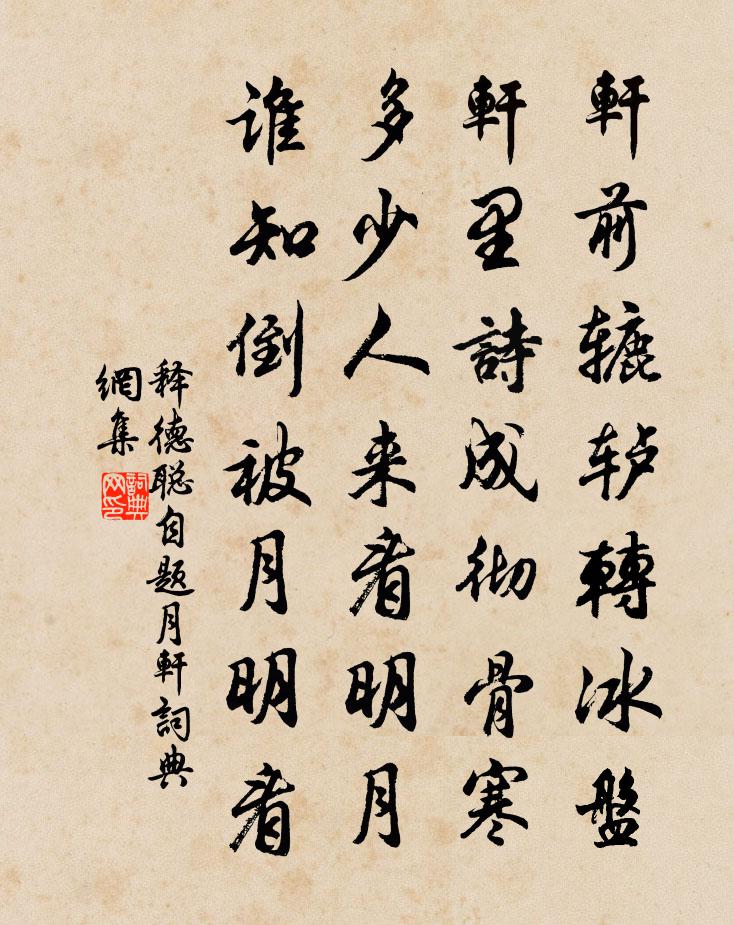 軒前辘轳轉冰盤
軒里詩成彻骨寒
多少人来看明月
谁知倒被月明看
释德聪自题月軒詞典
網集
詞典
网印